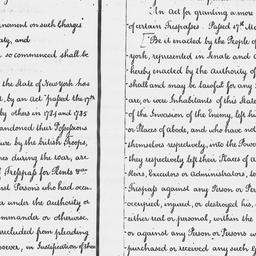 nament on such Charges
aty, and
so commenced shall be
the State of New York has
t, by an Act "passed the 17th
by others in 1784 and 1785
andoned their Possessions
ure by the British Troops,
nces during the war, are
of Trespass for Rents &ca
nst Persons who had occu
r under the authority or
ommander or otherwise,
recluded from pleading
soever, in Justification of them
An Act for granting a more
of certain Trespasses. Passed 17th Ma
Be it enacted by the People of
york, represented in Senate and
hereby enacted by the Authority of
shall and may be lawful for any
are, or were Inhabitants of this State
of the Invasion of the Enemy, left his
or Places of abode, and who have not
themselves respectively, into the Power
they respectively left their Places of a
Heirs, Executors or Administrators, to
Trespass against any Person or Per
occupied, injured, or destroyed his,
either real or personal, within the
or against any Person or Persons w
purchased or received any such